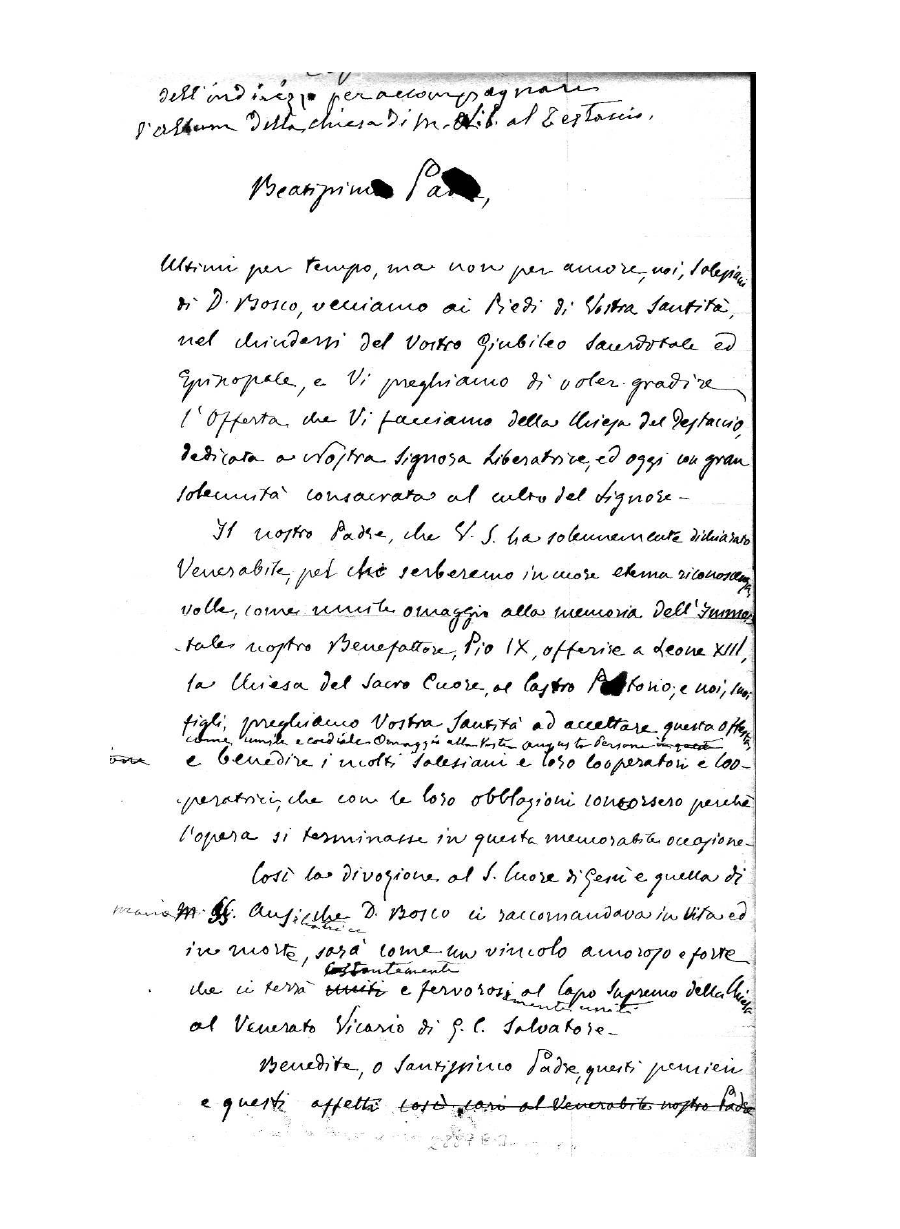 dell'indirizzo per accompagnare
l'album della chiesa di M. Lib. al Testaccio.
Beatissimo Padre,
Ultimi per tempo, ma non per amore, noi, Salesiani
di D. Bosco, veniamo ai Piedi di Vostra Santità,
nel chiudersi del Vostro Giubileo Sacerdotale ed
Episcopale, e Vi preghiamo di voler gradire
l'Offerta che Vi facciamo della Chiesa del Testaccio,
dedicata a Nostra Signora Liberatrice, ed oggi con gran
solennità consacrata al culto del Signore -
Il nostro Padre, che V. S. ha solennemente dichiarato
Venerabile, pel che serberemo in cuore eterna riconoscenza,
volle, come umile omaggio alla memoria dell'Immor-
tale nostro Benefattore, Pio IX, offerire a Leone XIII,
la Chiesa del Sacro Cuore, al Castro Pretorio; e noi, suoi
figli, preghiamo Vostra Santità ad accettare questa offerta,
come umile e cordiale Omaggio alla Vostra augusta Persona in questa
e benedire i molti Salesiani e loro Cooperatori e Coo-
peratrici, che con le loro obblazioni concorsero perchè
l'opera si terminasse in questa memorabile occasione -
Così la divozione al S. Cuore di Gesù e quella di
Maria M. SS. Ausiliatrice che D. Bosco ci raccomandava in vita ed
in morte, sarà come un vincolo amoroso e forte
costantemente
che ci terrà uniti e fervorosi al Capo Supremo della Chiesa
mente uniti
al Venerato Vicario di G. C. Salvatore -
Benedite, o Santissimo Padre, questi pensieri
e questi affetti così cari al Venerabile nostro Padre